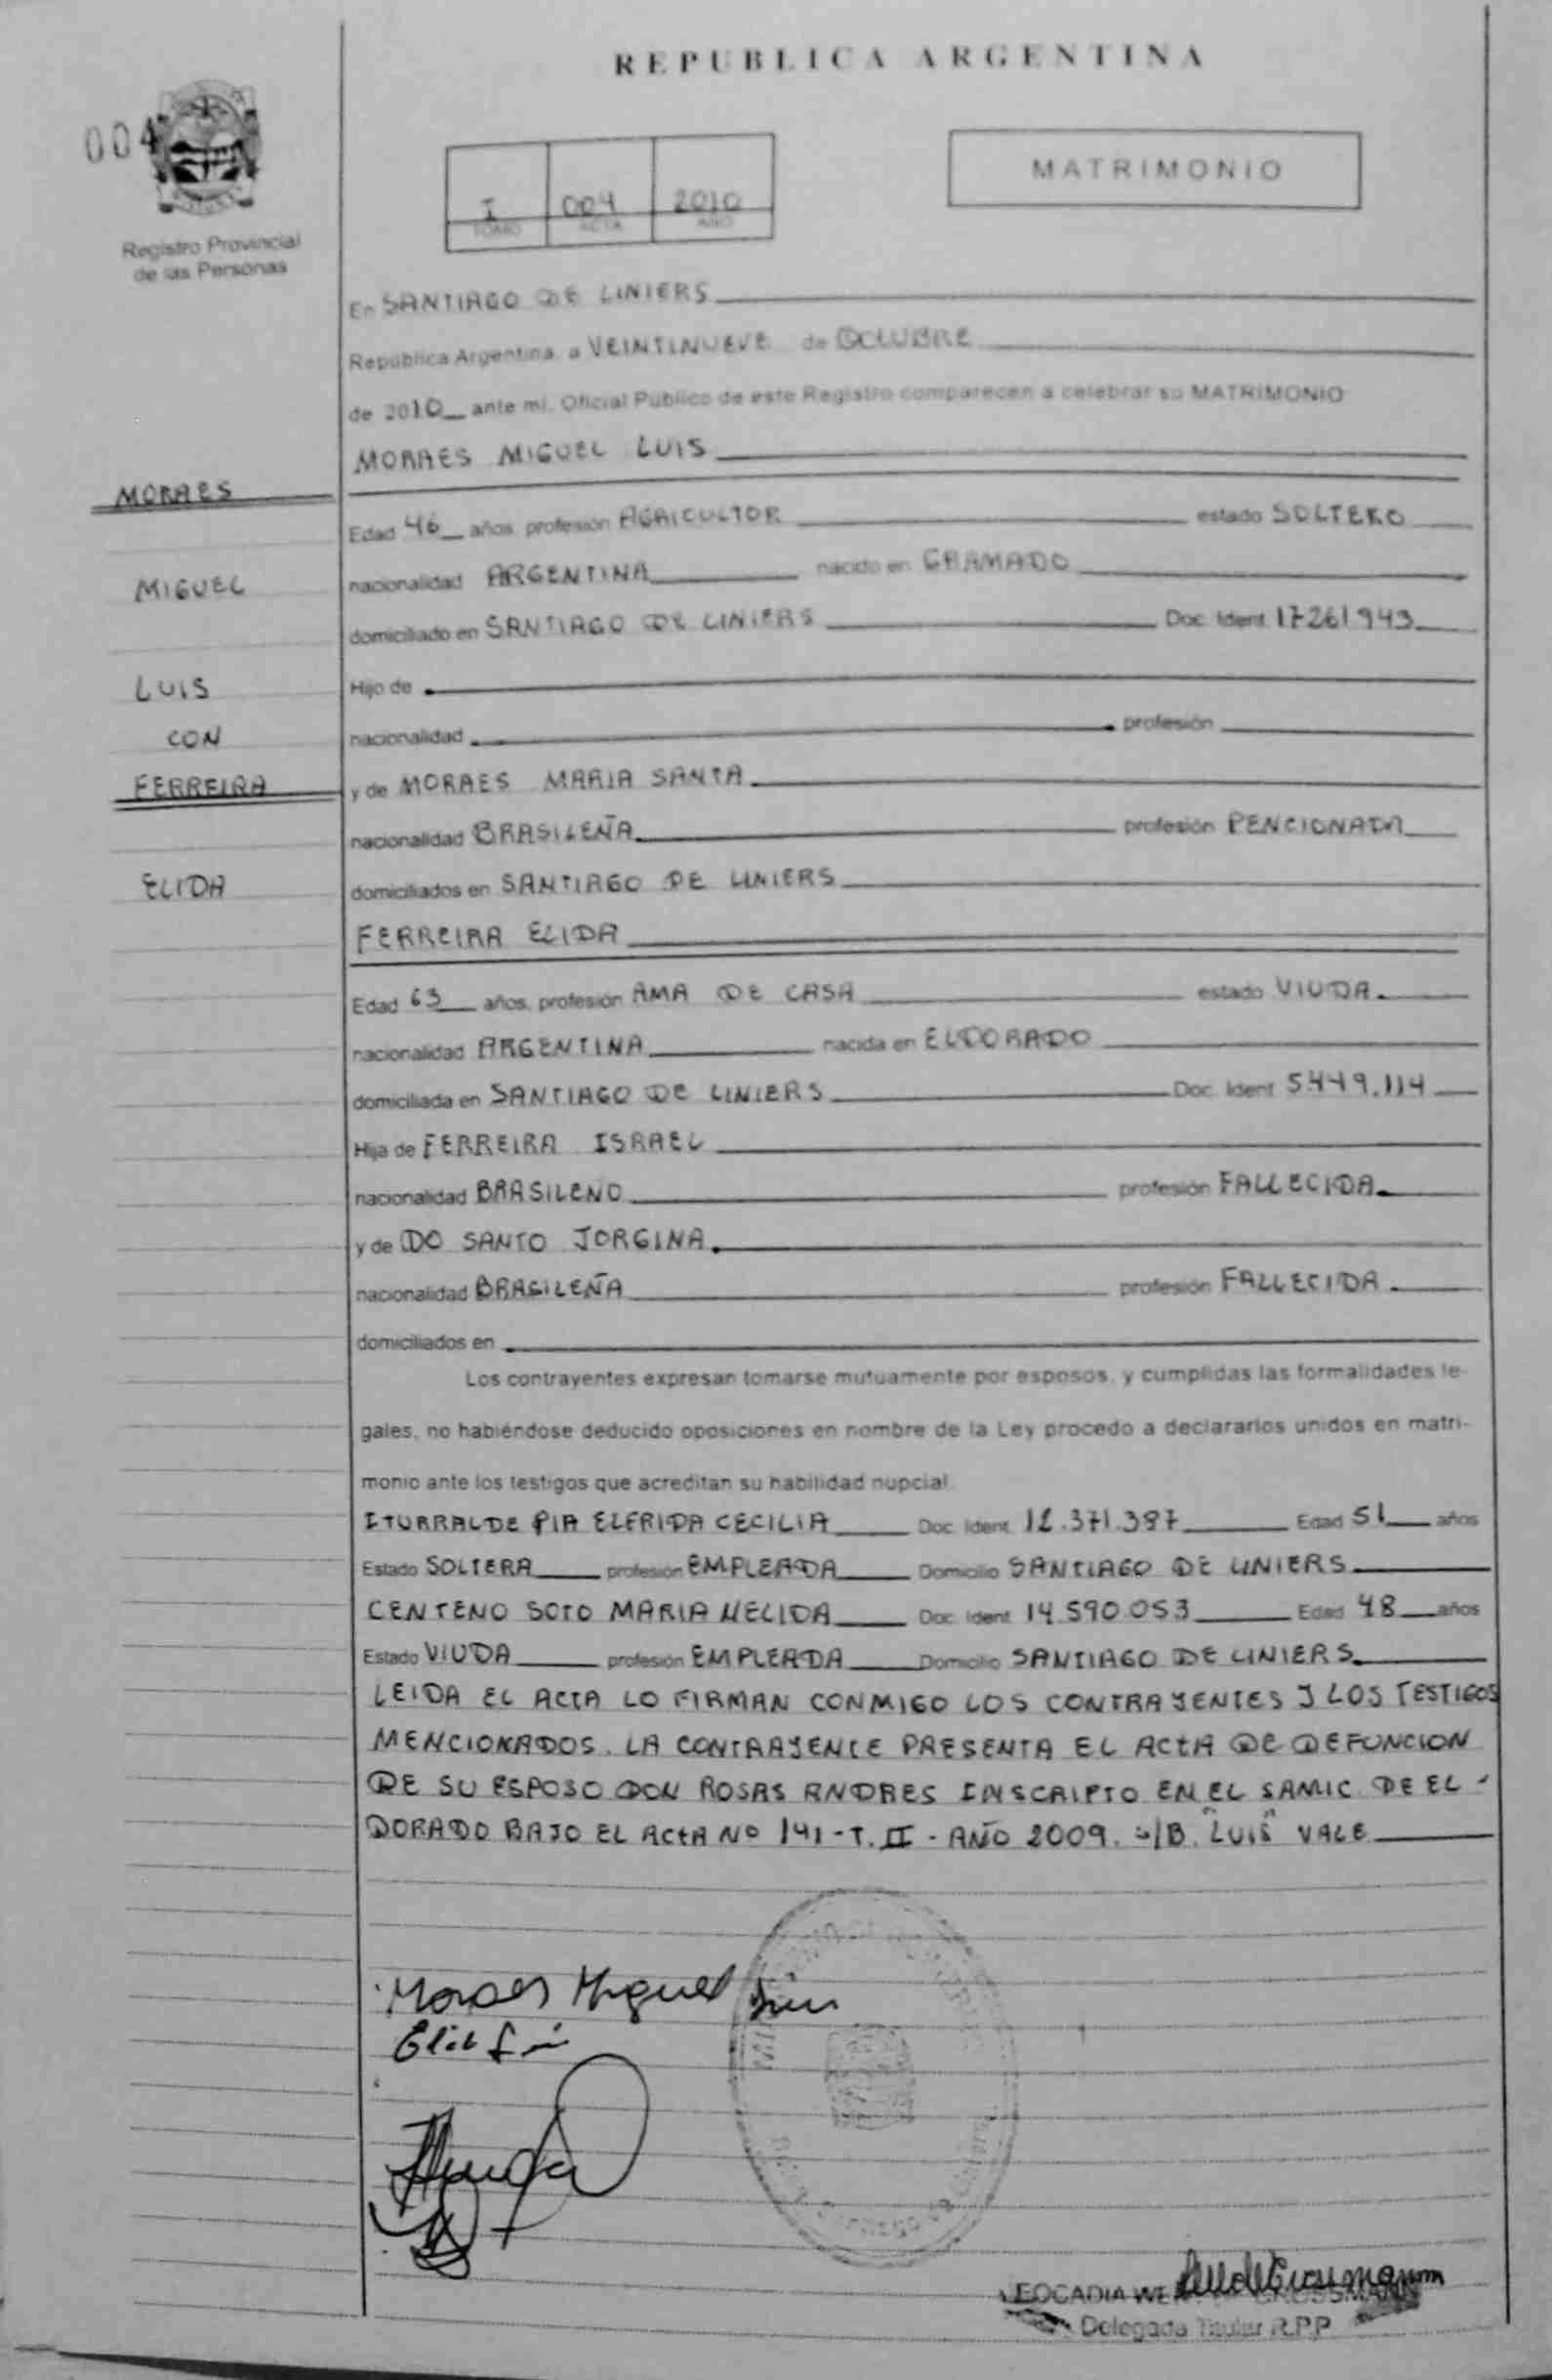 REPUBLICA ARGENTINA
004
MATRIMONIO
I 004 2010
TOMO ACTA AÑO
Registro Provincial
de las Personas
En SANTIAGO DE LINIERS
República Argentina, a VEINTINUEVE de OCTUBRE
de 2010 ante mi, Oficial Público de este Registro comparecen a celebrar su MATRIMONIO
MORAES MIGUEL LUIS
MORAES
Edad 46 años profesión AGRICULTOR estado SOLTERO
MIGUEL
nacionalidad ARGENTINA nacido en GRAMADO
domiciliado en SANTIAGO DE LINIERS Doc. Ident. 17261943
LUIS
Hijo de
CON
nacionalidad profesión
FERREIRA
y de MORAES MARIA SANTA
nacionalidad BRASILEÑA profesión PENCIONADA
ELIDA
domiciliados en SANTIAGO DE LINIERS
FERREIRA ELIDA
Edad 63 años, profesión AMA DE CASA estado VIUDA.
nacionalidad ARGENTINA nacida en ELDORADO
domiciliada en SANTIAGO DE LINIERS Doc. Ident 5.449.114
Hija de FERREIRA ISRAEL
nacionalidad BRASILENO profesión FALLECIDA.
y de DO SANTO JORGINA.
nacionalidad BRASILEÑA profesión FALLECIDA
domiciliados en
Los contrayentes expresan tomarse mutuamente por esposos, y cumplidas las formalidades le-
gales, no habiéndose deducido oposiciones en nombre de la Ley procedo a declararlos unidos en matri-
monio ante los testigos que acreditan su habilidad nupcial
ITURRALDE PIA ELFRIDA CECILIA Doc. Ident. 12.371.387 Edad 51 años
Estado SOLTERA profesión EMPLEADA Domicilio SANTIAGO DE LINIERS
CENTENO SOTO MARIA NELIDA Doc. Ident. 14.590.053 Edad 48 años
Estado VIUDA profesión EMPLEADA Domicilio SANTIAGO DE LINIERS.
LEIDA EL ACTA LO FIRMAN CONMIGO LOS CONTRAYENTES Y LOS TESTIGOS
MENCIONADOS. LA CONTRAYENTE PRESENTA EL ACTA DE DEFUNCION
DE SU ESPOSO DON ROSAS ANDRES INSCRIPTO EN EL SAMIC. DE EL-
DORADO BAJO EL ACTA Nº 141-T. II - AÑO 2009. S/B. "LUIS" VALE
Moraes Miguel Luis
LEOCADIA GROSSMANN
Delegada Titular R.P.P